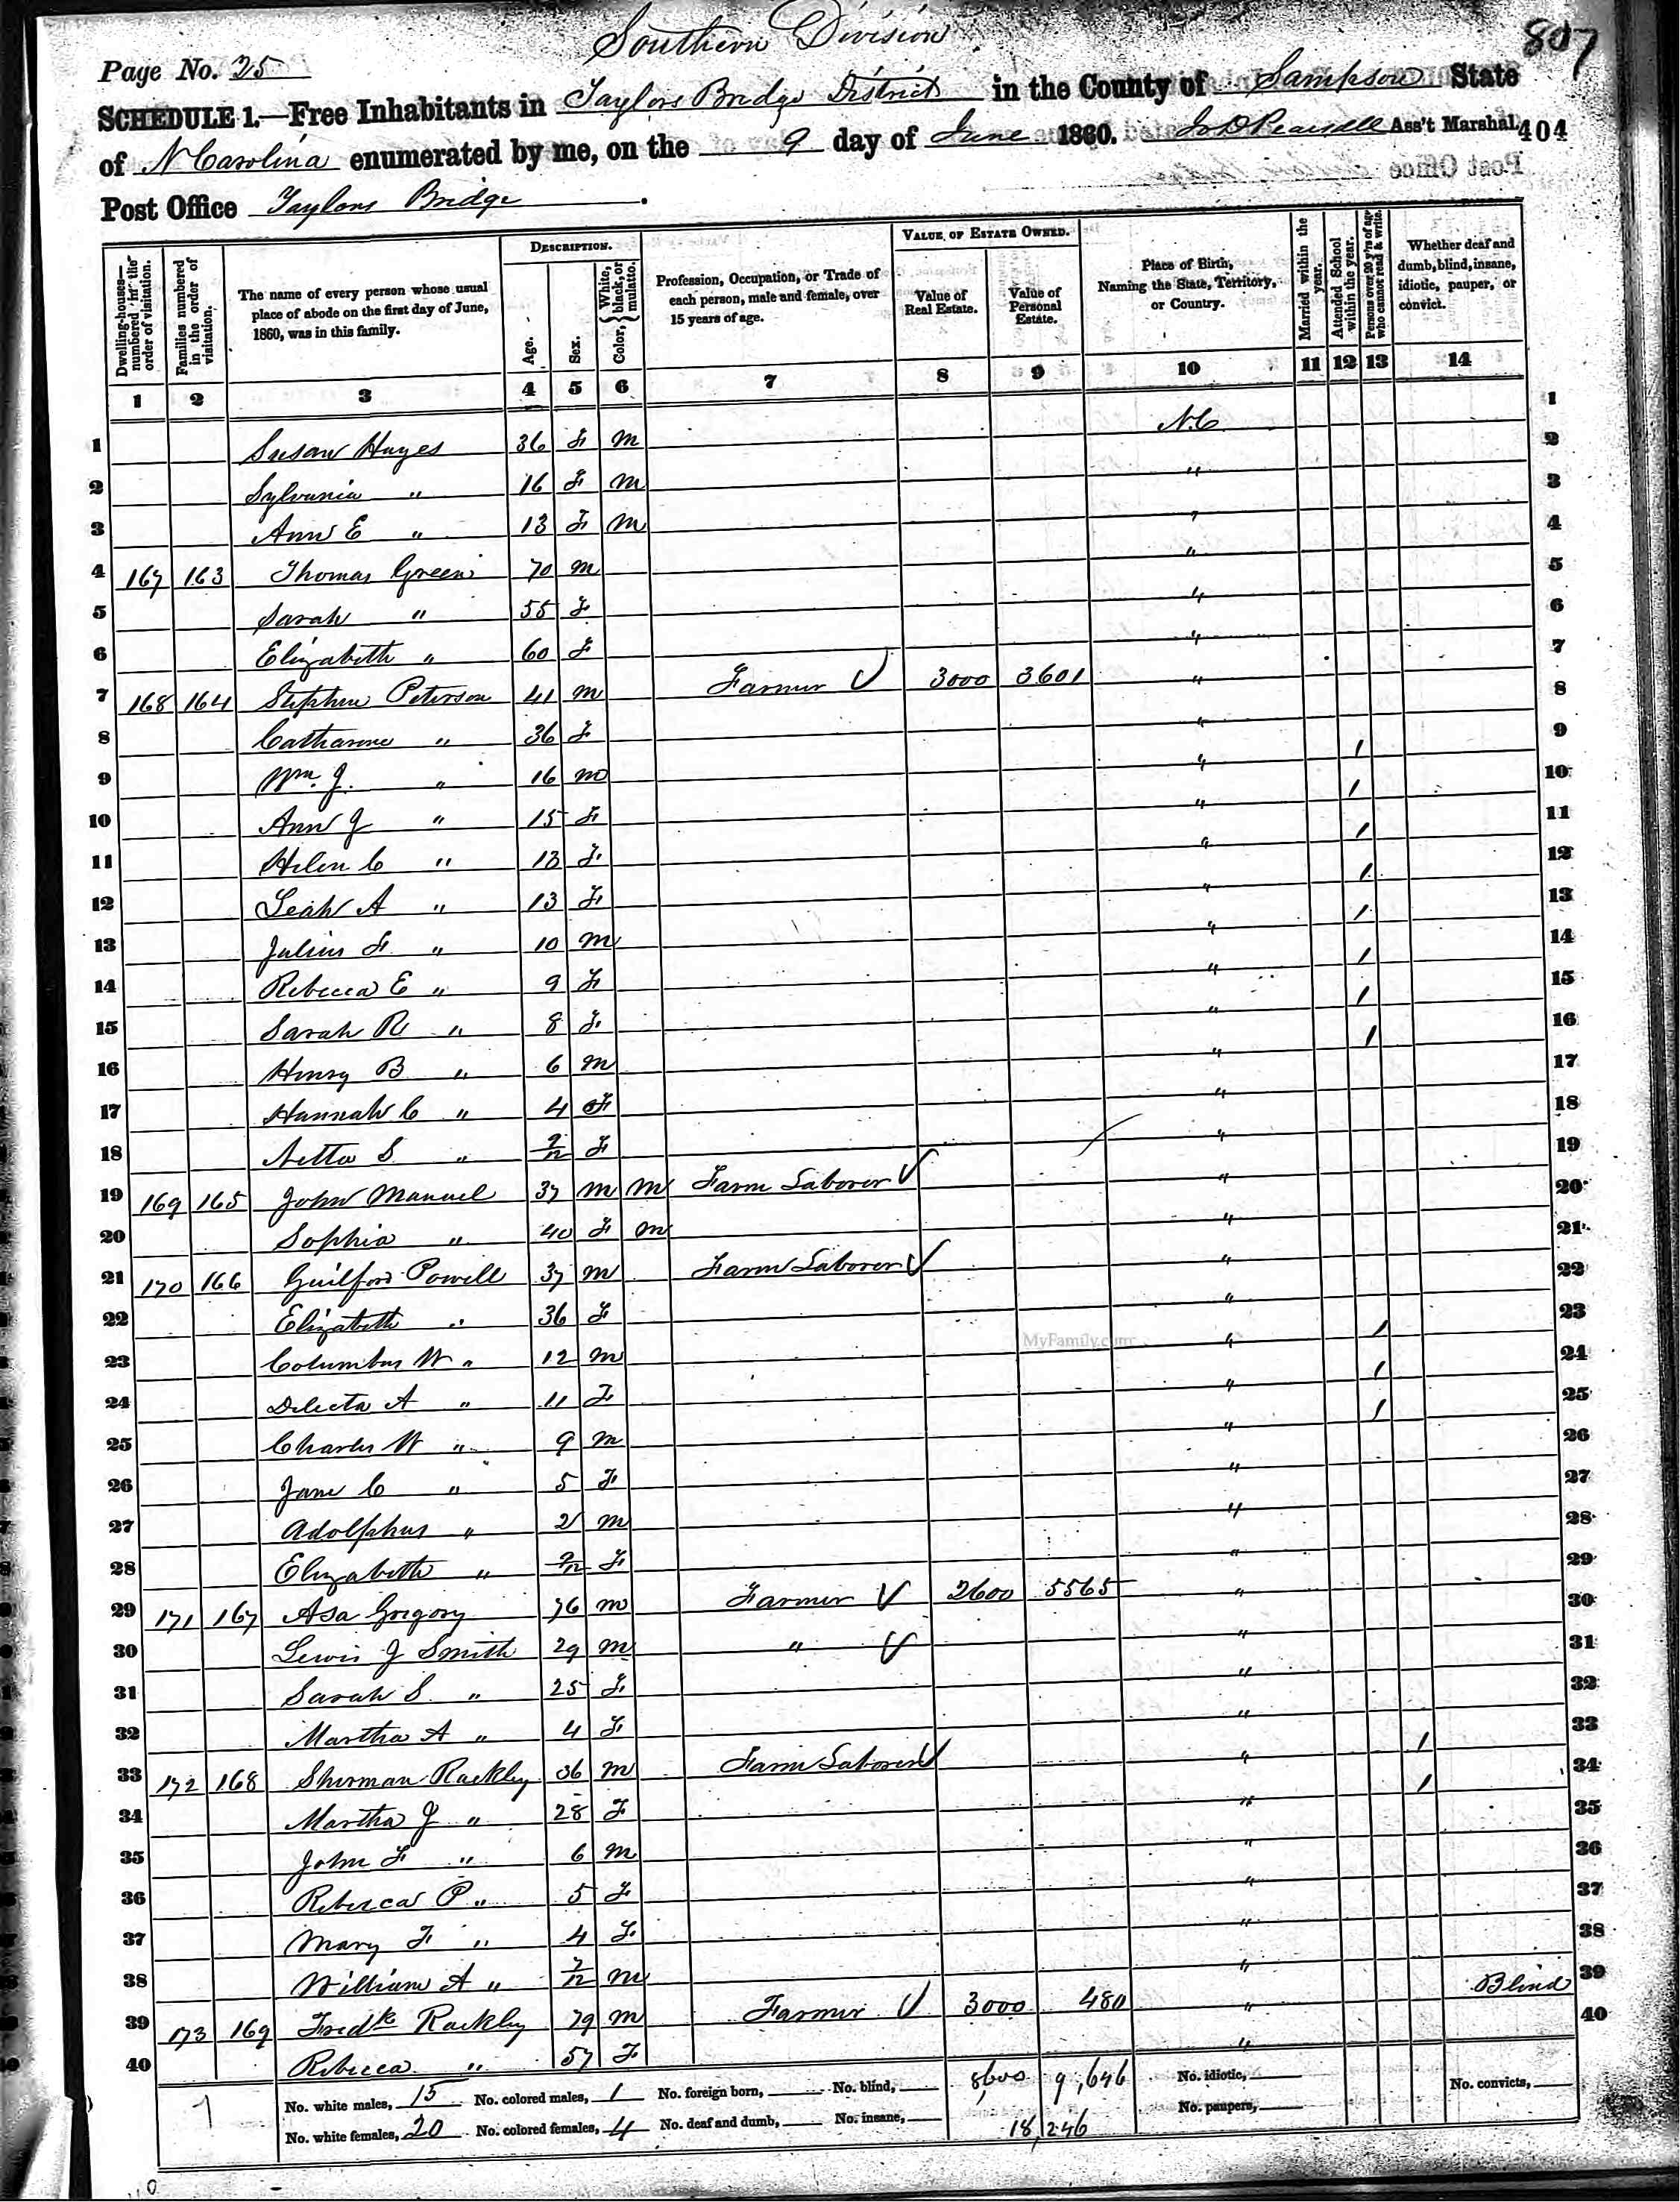 Southern Division
807
Page No. 25
SCHEDULE 1.—Free Inhabitants in Taylors Bridge District in the County of Sampson State
of N Carolina enumerated by me, on the 9 day of June 1860. Ass't Marshal 404
Post Office Taylors Bridge.
Post Office
Dwelling-houses—numbered in the order of visitation.
Families numbered in the order of visitation.
The name of every person whose usual place of abode on the first day of June, 1860, was in this family.
DESCRIPTION.
Age.
Sex.
Color, White, black, or mulato.
Profession, Occupation, or Trade of each person, male and female, over 15 years of age.
VALUE OF ESTATE OWNED.
Value of Real Estate.
Value of Personal Estate.
Place of Birth, Naming the State, Territory, or Country.
Married within the year.
Attended School within the year.
Persons over 20 y'rs of age who cannot read & write.
Whether deaf and dumb, blind, insane, idiotic, pauper, or convict.
1 2 3 4 5 6 7 8 9 10 11 12 13 14
1 Susan Hayes 36 F M N.C 1
2 Sylvania " 16 F M " 2
3 Ann E " 13 F M " 3
4 167 163 Thomas Green 70 M " 4
5 Sarah " 55 F " 5
6 Elizabeth " 60 F " 6
7 168 164 Stephen Peterson 41 M Farmer V 3000 3601 " 7
8 Catharine " 36 F " 8
9 Wm. J. " 16 M " / 9
10 Ann J " 15 F " / 10
11 Helen C " 13 F " / 11
12 Leah A " 13 F " / 12
13 Julius F. " 10 M " / 13
14 Rebecca E " 9 F " / 14
15 Sarah R " 8 F " / 15
16 Henry B " 6 M " / 16
17 Hannah C " 4 F " 17
18 Netta S " 9/12 F " 18
19 169 165 John Manuel 37 M M Farm Laborer V " 19
20 Sophia " 40 F M " 20
21 170 166 Guilford Powell 37 M Farm Laborer V " 21
22 Elizabeth " 36 F " 22
MyFamily.com
23 Columbus W " 12 M " / 23
24 Delecta A " 11 F " / 24
25 Charles W " 9 M " / 25
26 Jane C " 5 F " 26
27 Adolphus " 2 M " 27
28 Elizabeth " 9/12 F " 28
29 171 167 Asa Gregory 76 M Farmer V 2600 5565 " 29
30 Lewis J Smith 29 M " V " 30
31 Sarah S. " 25 F " 31
32 Martha A " 4 F " 32
33 172 168 Sherman Rackley 36 M Farm Laborer V " / 33
34 Martha J " 28 F " / 34
35 John F " 6 M " 35
36 Rebecca P " 5 F " 36
37 Mary F " 4 F " 37
38 William A " 7/12 M " 38
39 173 169 Fredk Rackley 79 M Farmer V 3000 480 " Blind 39
40 Rebecca " 57 F " 40
No. white males, 15 No. colored males, 1 No. foreign born, No. blind, 8600 9,646 No. idiotic, No. convicts,
No. white females, 20 No. colored females, 4 No. deaf and dumb, No. insane, 18,246 No. paupers,